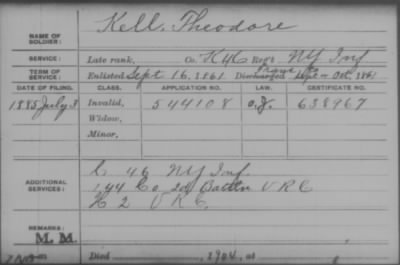 NAME OF SOLDIER: Kell, Theodore
SERVICE: Late rank, Co. K 46 Reg't NY Inf
TERM OF SERVICE: Enlisted Sept 16, 1861 Discharged Sept or Oct, 1861
DATE OF FILING. CLASS. APPLICATION NO. LAW. CERTIFICATE NO.
1885 July 3 Invalid, 544108 638967
Widow,
Minor,
C 46 NY Inf.
ADDITIONAL SERVICES: 144 Co 2d Battn V R C
H 2 V R C.
REMARKS:
M. M.
Died , 1904, at